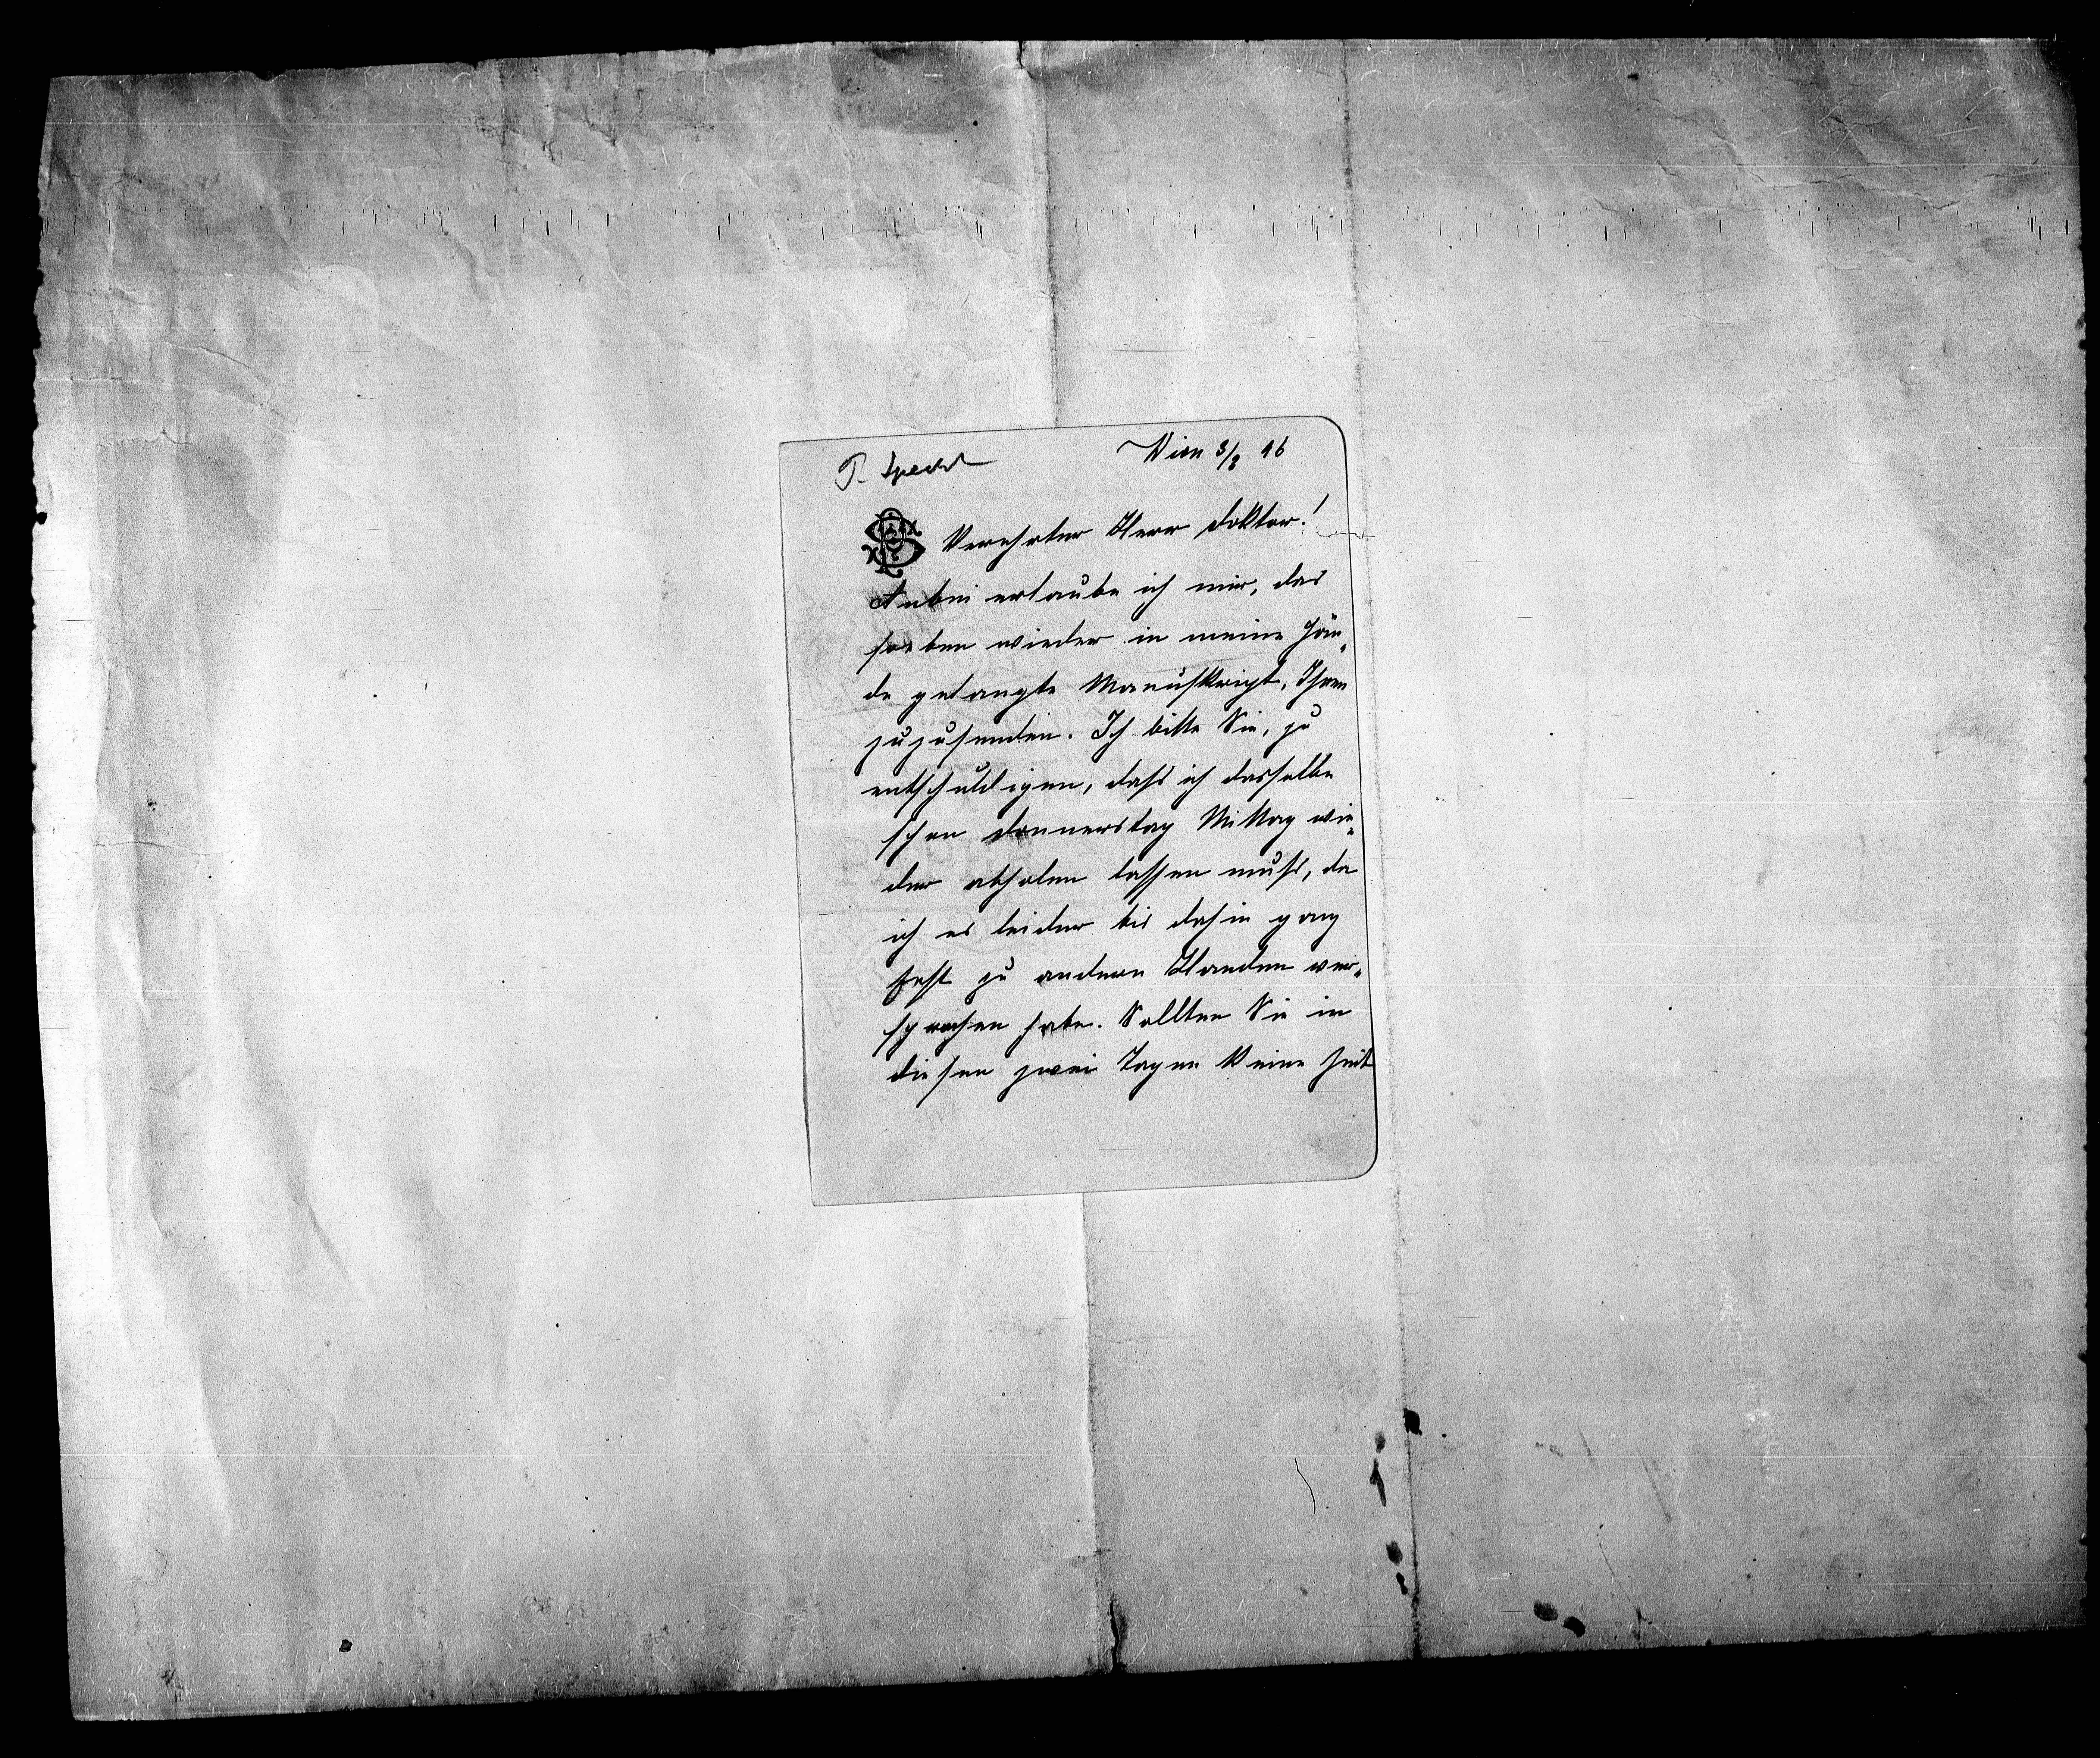 R. Specht
Wien 3/3 96
Verehrter Herr Doktor!
Anbei erlaube ich mir, das
soeben wieder in meine Hän-
de gelangte Manuskript, Ihnen
zuzusenden. Ich bitte Sie, zu
entschuldigen, dass ich dasselbe
schon Donnerstag Mittag wie-
der abholen lassen muss, da
ich es leider bis dahin ganz
fest zu andern Handen ver-
sprochen habe. Sollten Sie in
diesen zwei Tagen keine Zeit